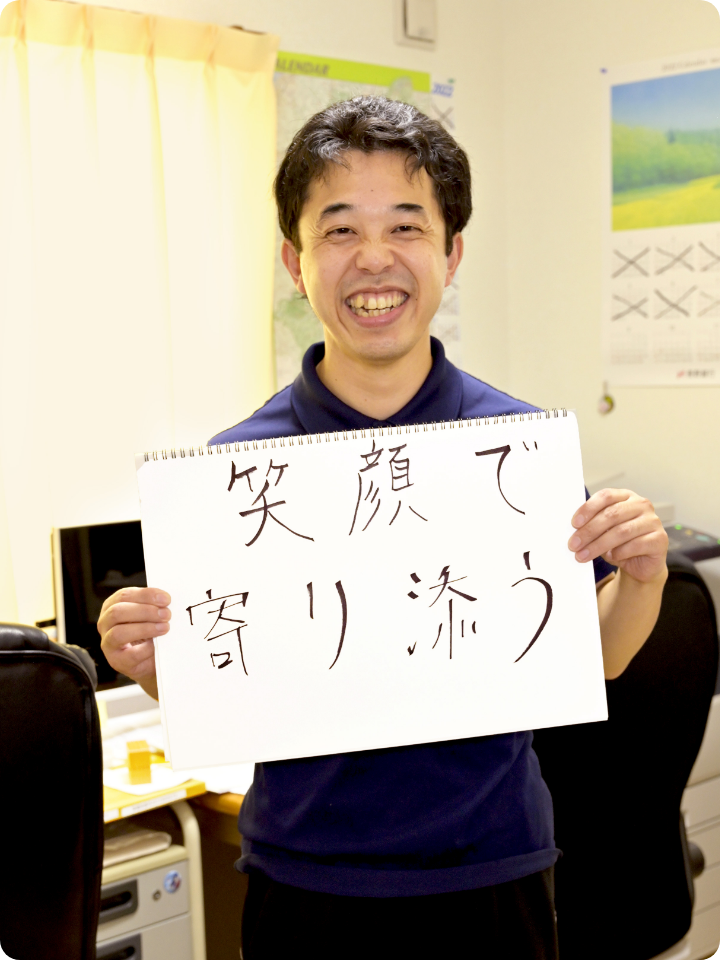 CALENDAR
2022
笑顔で
寄り添う